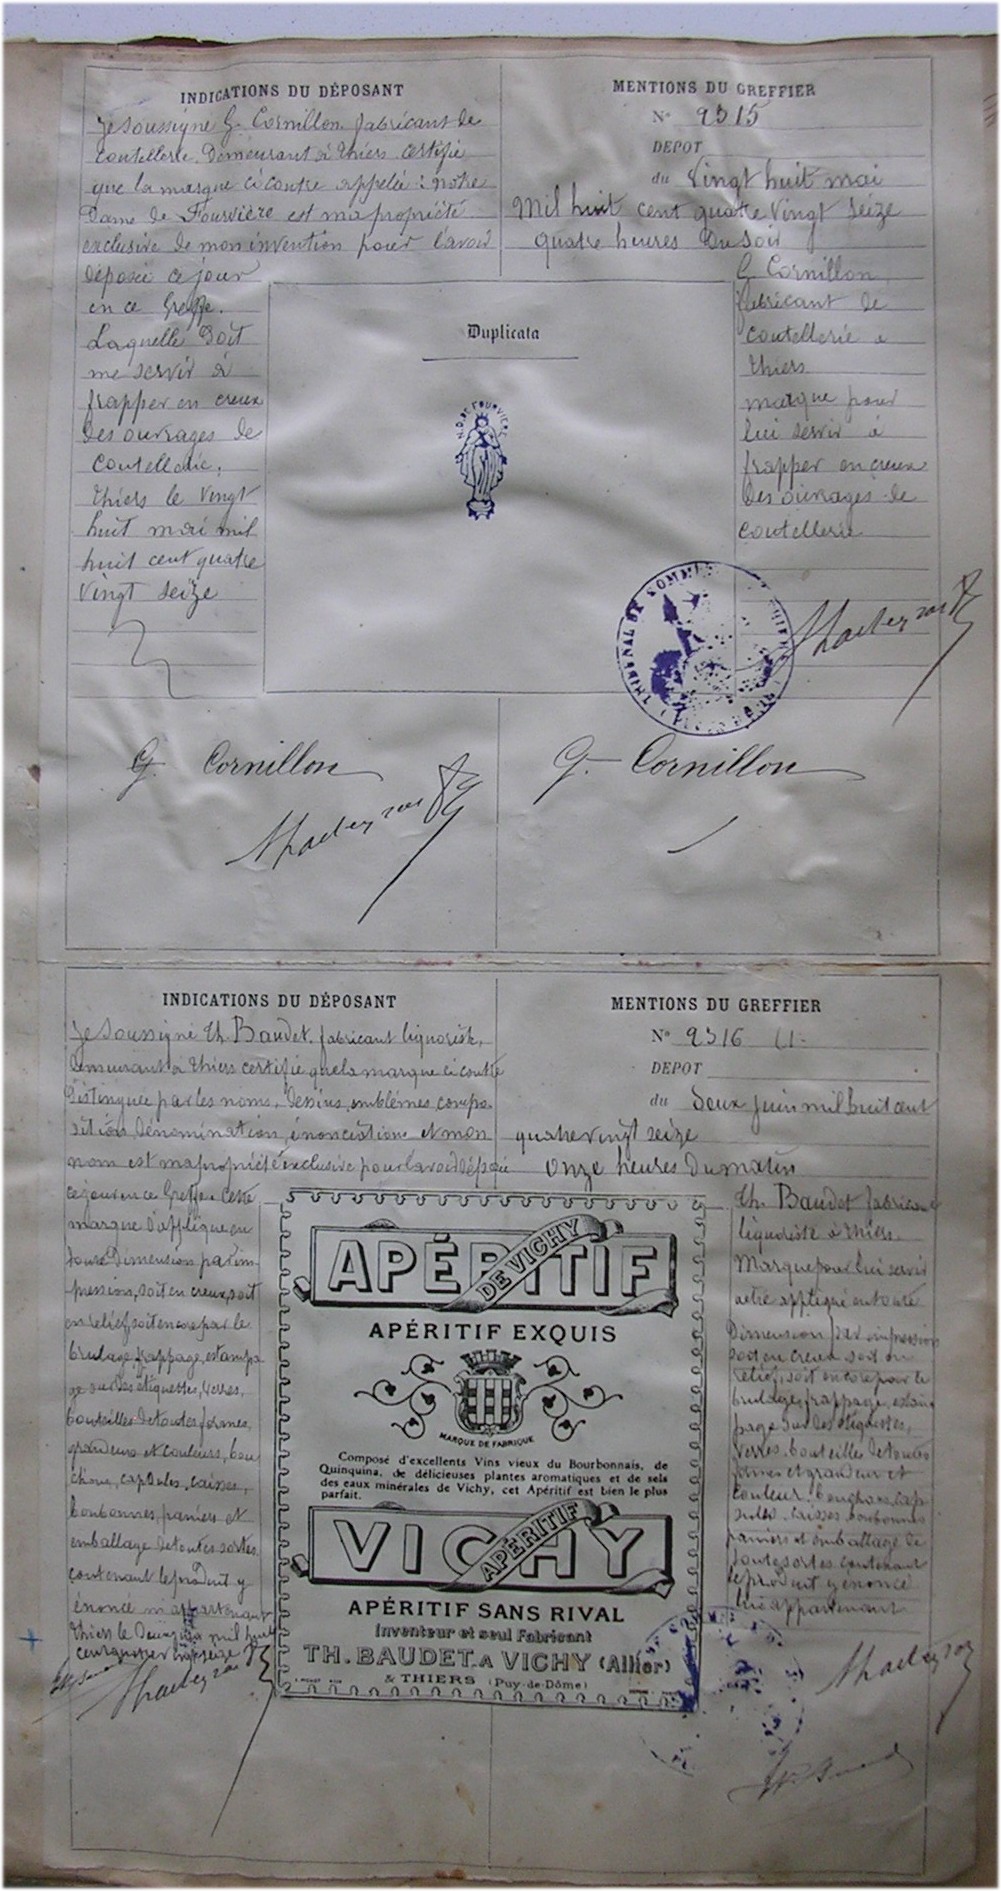 INDICATIONS DU DÉPOSANT
Je soussigné G. Cornillon. fabricant de
coutellerie. Demeurant à Thiers certifie
que la marque ci contre appelée : notre
Dame de Fourvière est ma propriété
exclusive de mon invention pour l'avoir
déposée ce jour
en ce Greffe.
Laquelle doit
me servir à
frapper en creux
des ouvrages de
coutellerie.
Thiers le vingt
huit mai mil
huit cent quatre
vingt seize
MENTIONS DU GREFFIER
N° 2315
DEPOT
du Vingt huit mai
Mil huit cent quatre vingt seize
quatre heures du soir
G. Cornillon
fabricant de
coutellerie à
Thiers
marque pour
lui servir à
frapper en creux
des ouvrages de
coutellerie
Duplicata
N.D. DE FOURVIERE
TRIBUNAL DE COMMERCE
G. Cornillon
G. Cornillon
INDICATIONS DU DÉPOSANT
Je soussigné Th. Baudet. fabricant liquoriste,
demeurant à Thiers certifie que la marque ci contre
distinguée par les noms, dessins, emblêmes, compo-
sition, dénomination, énonciations et mon
nom est ma propriété exclusive pour l'avoir déposée
ce jour en ce Greffe. Cette
marque s'applique en
toute Dimension par im-
pression, soit en creux, soit
en relief, soit encore par le
brulage, frappage, estampa-
ge sur des étiquettes, verres,
bouteilles de toutes formes,
grandeurs et couleurs, bou-
chons, capsules, caisses,
bonbonnes, paniers et
emballage de toutes sortes
contenant le produit y
énoncé m'appartenant
Thiers le deux juin mil huit
cent quatre vingt seize
MENTIONS DU GREFFIER
N° 2316
DEPOT
du Deux juin mil huit cent
quatre vingt seize
Onze heures du matin
Th. Baudet fabricant
liquoriste à Thiers.
Marque pour lui servir
a être appliqué en toute
Dimension par impression
soit en creux soit en
relief, soit encore pour le
brulage, frappage, estam-
page sur des étiquettes,
verres, bouteilles de toutes
formes et grandeur et
couleur, bouchons, cap-
sules, caisses bonbonnes
paniers et emballage de
toutes sortes contenant
le produit y énoncé
lui appartenant
APÉRITIF
DE VICHY
APÉRITIF EXQUIS
MARQUE DE FABRIQUE
Composé d'excellents Vins vieux du Bourbonnais, de
Quinquina, de délicieuses plantes aromatiques et de sels
des eaux minérales de Vichy, cet Apéritif est bien le plus
parfait.
VICHY
APÉRITIF
APÉRITIF SANS RIVAL
Inventeur et seul Fabricant
TH. BAUDET. A VICHY (Allier)
& THIERS (Puy-de-Dôme)